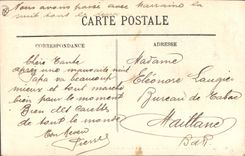 Nous avons passé avec
CARTE POSTALE
CORRESPONDANCE
ADRESSE
Chère Tante
après une mauvaise nuit
Papa va beaucoup
mieux et tout marche
bien pour le moment
Bien des
de tout le monde
Pierre
Madame
Eléonore
Bureau de Tabac
Maillane
B d R